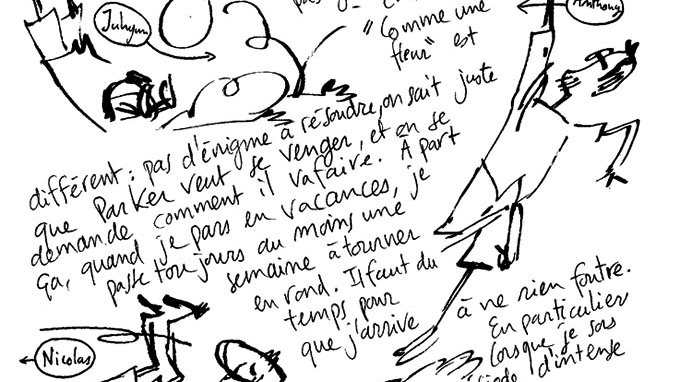 Juhyun
Anthony
"Comme une
fleur" est
différent : pas d'énigme à résoudre, on sait juste
que Parker veut se venger, et on se
demande comment il va faire. A part
ça, quand je pars en vacances, je
passe toujours au moins une
semaine à tourner
en rond. Il faut du
temps pour
que j'arrive
à ne rien foutre.
En particulier
lorsque je sors
d'intense
Nicolas